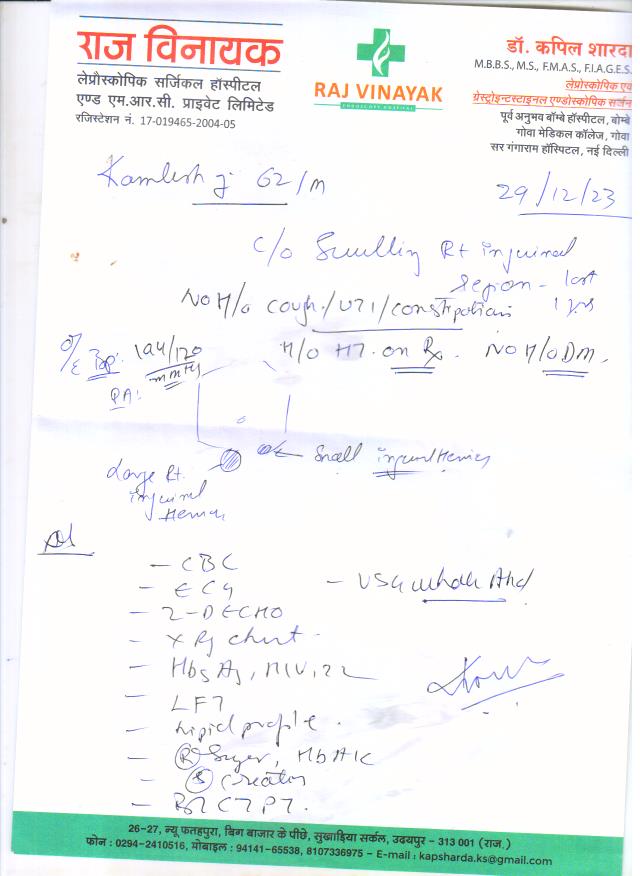 राज विनायक
लेप्रौस्कोपिक सर्जिकल हॉस्पीटल
एण्ड एम.आर.सी. प्राइवेट लिमिटेड
रजिस्टेशन नं. 17-019465-2004-05
RAJ VINAYAK
ENDOSCOPY HOSPITAL
डॉ. कपिल शारदा
M.B.B.S., M.S., F.M.A.S., F.I.A.G.E.S.
लेप्रोस्कोपिक एव
गेस्ट्रोइन्टस्टाइनल एण्डोस्कोपिक सर्जन
पूर्व अनुभव बॉम्बे हॉस्पीटल, बोम्बे
गोवा मेडिकल कॉलेज, गोवा
सर गंगाराम हॉस्पिटल, नई दिल्ली
Kamlesh j 62/M
29/12/23
c/o Swelling Rt inguinal
region - last
1 yrs
No H/o cough/UTI/constipation
O/E Bp: 124/120
mmHg
H/o HT. on Rx. No H/o DM.
PA:
Small inguinal Hernia
Large Rt.
inguinal
Hernia
- CBC
- ECG
- USG whole Abd
- 2-D ECHO
- X Ray chest
- HbsAg, HIV,
- LFT
- Lipid profile.
- (R) Sugar, HbA1c
- (S) Creatin
- BT CT PT.
26-27, न्यू फतहपुरा, बिग बाजार के पीछे, सुखाड़िया सर्कल, उदयपुर - 313 001 (राज.)
फोन : 0294-2410516, मोबाइल : 94141-65538, 8107336975 – E-mail : kapsharda.ks@gmail.com